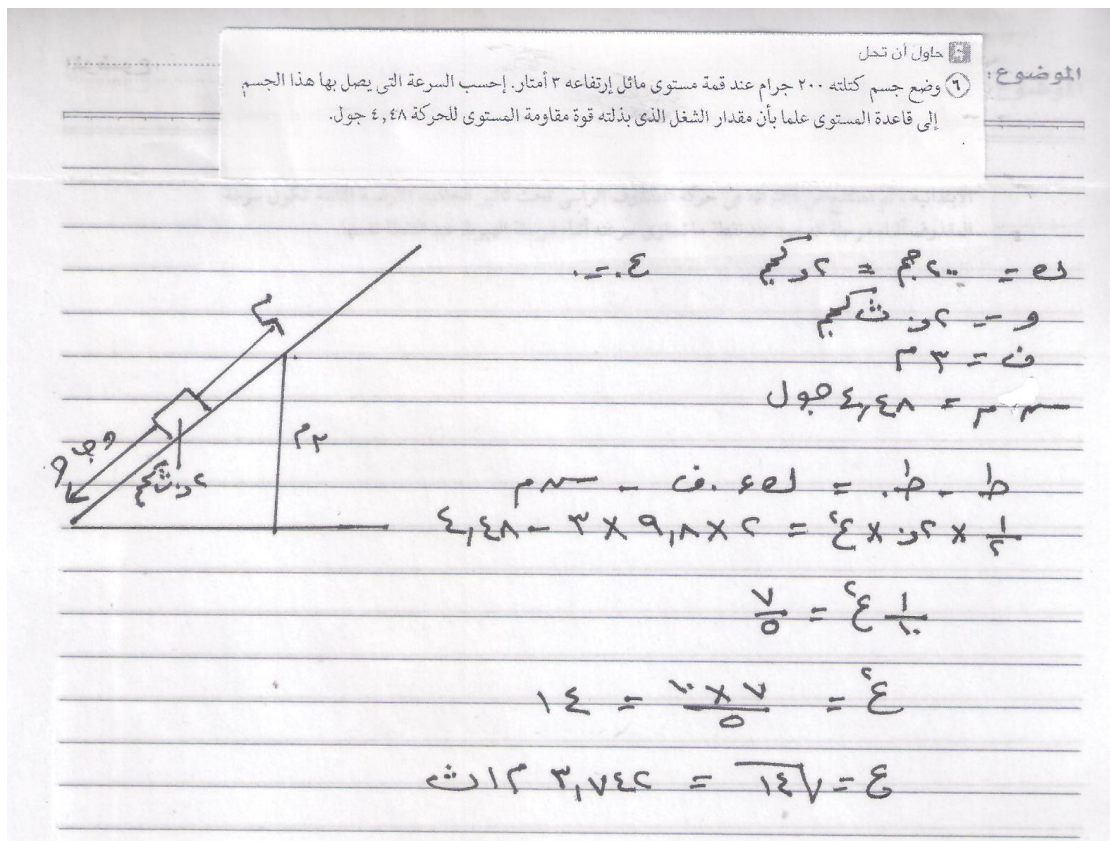 الموضوع:
حاول أن تحل
٦ وضع جسم كتلته ٢٠٠ جرام عند قمة مستوى مائل إرتفاعه ٣ أمتار. إحسب السرعة التى يصل بها هذا الجسم
إلى قاعدة المستوى علما بأن مقدار الشغل الذى بذلته قوة مقاومة المستوى للحركة ٤,٤٨ جول.
ك = ٢٠٠ جم = ٢,٠ كجم ع. = ٠
و = ٢,٠ ث كجم
ف = ٣ م
م = ٤,٤٨ جول
م
٣ م
و جـ
٢,٠ ث كجم
ط - ط. = ك ء . ف - م
١/٢ × ٢,٠ × ع٢ = ٢ × ٩,٨ × ٣ - ٤,٤٨
١/١٠ ع٢ = ٧/٥
ع٢ = ٧ × ١٠/٥ = ١٤
ع = √١٤ = ٣,٧٤٢ م/ث